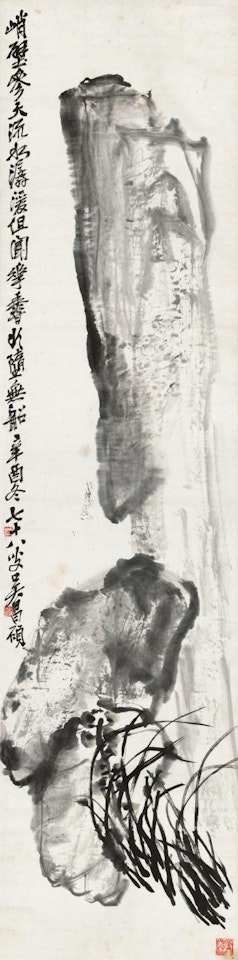 峭壁參天流水潺湲但聞華香欲隨無船辛酉冬七十八叟吳昌碩